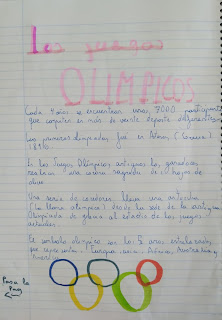 Los juegos
OLIMPICOS
Cada 4 años se encuentran unos 7000 participantes
que compiten en más de veinte deporte diferentes
Las primeras olimpiadas fué en Atenas (Grecia)
1896.
En los Juegos Olímpicos antiguos los ganadores
recibían una corona sagrada de hojas de
olivo
Una serie de corredores llevan una antorcha
(La llama olímpica) desde la sede de la antigua
Olimpiada de al estadio de los juegos
actuales.
El símbolo olímpico son los 5 aros entrelazados
que representa: Europa, Asia, África, Australia y
América
Pasa la
Pag